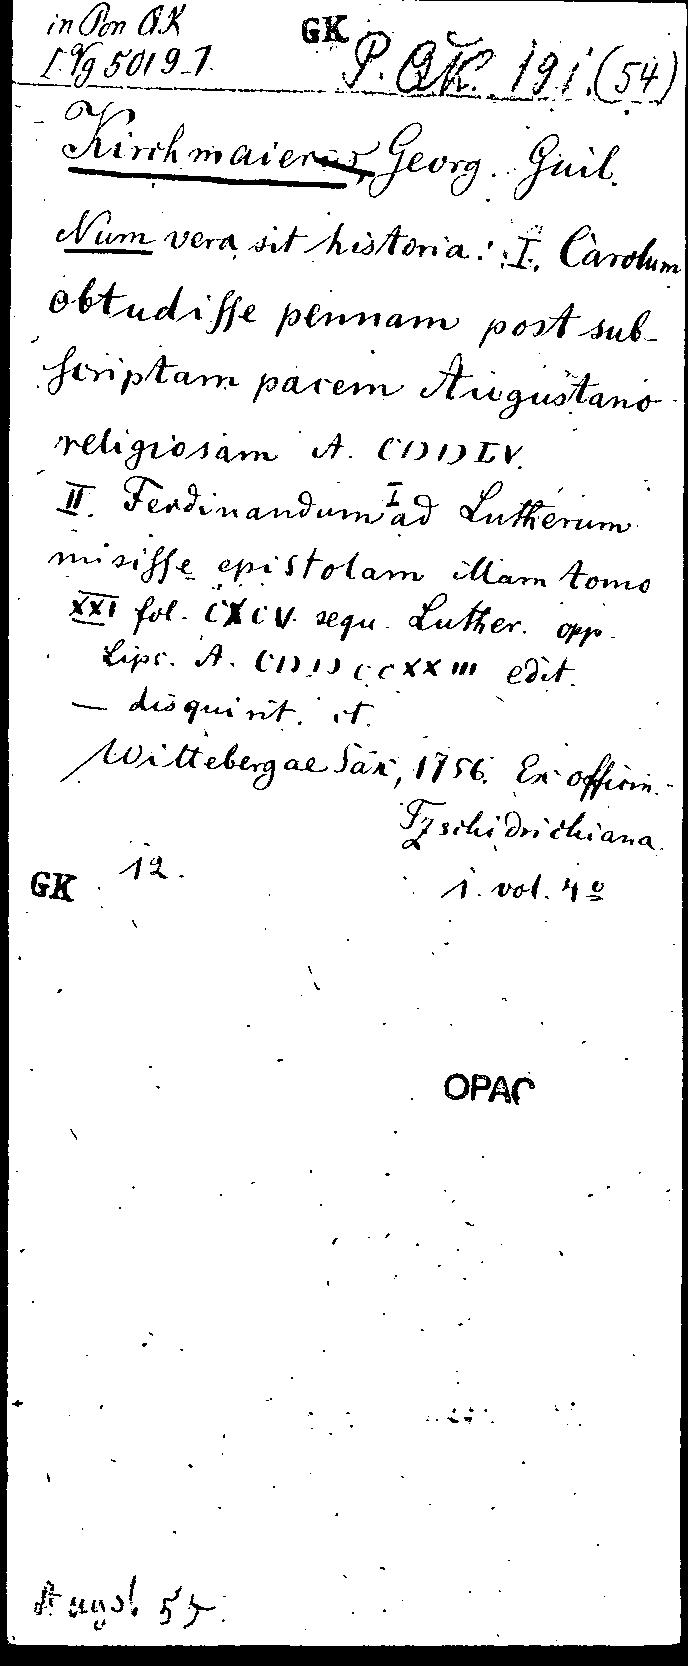 in Pon QK
I. Vg 5019-1.
GK
P. QK. 191. (54)
Kirchmaierus, Georg. Guil.
Num vera sit historia: I. Carolum
obtudisse pennam post sub-
scriptam pacem Augustano
religiosam A. CIƆIƆLV.
II. Ferdinandum I ad Lutherum
misisse epistolam illam tomo
XXI fol. CXCV. sequ. Luther. opp.
Lips. A. CIƆIƆCCXXIII edit.
— disquirit. et.
Wittebergae Sax, 1756. Ex officin.
Tzschidrichiana.
12.
GK
1. vol. 4º
OPAC
August. 54.